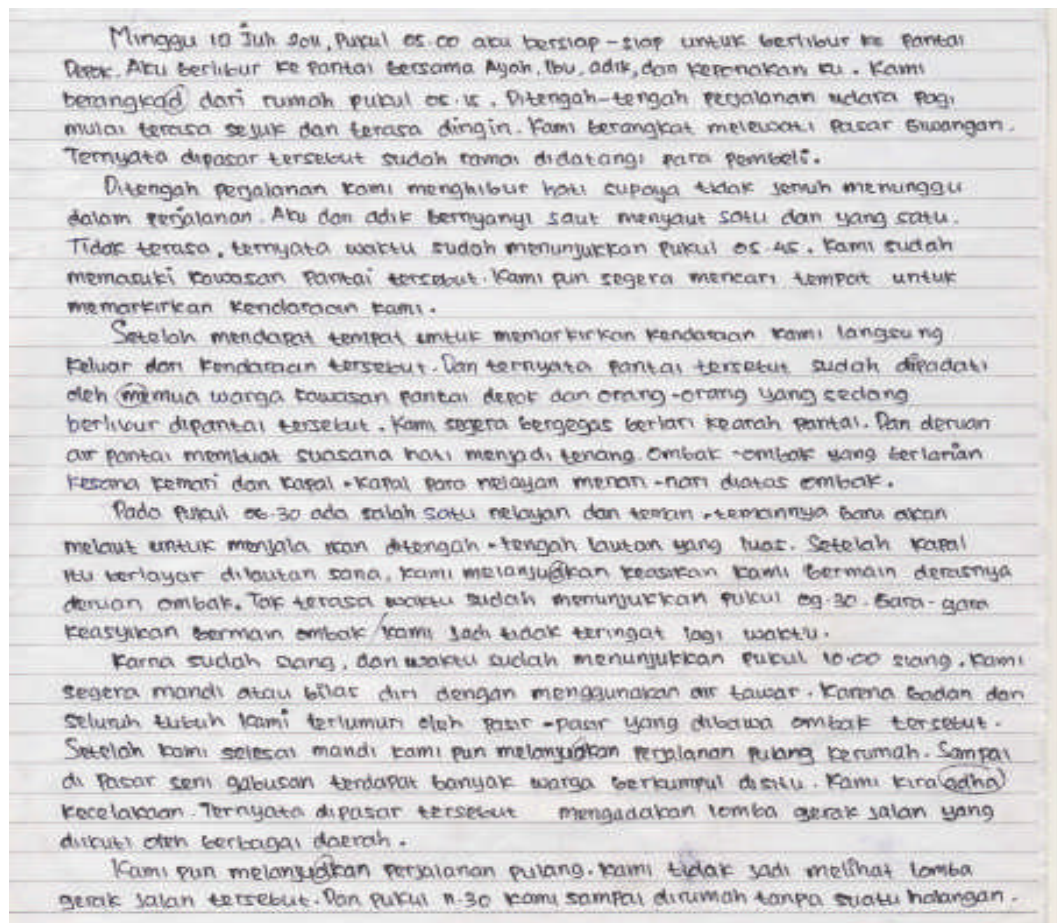 Minggu 10 Juli 2011, Pukul 05.00 aku bersiap-siap untuk berlibur ke Pantai
Depok. Aku berlibur ke Pantai bersama Ayah, Ibu, adik, dan keponakan ku. Kami
berangkad dari rumah pukul 05.15. Ditengah-tengah perjalanan udara Pagi
mulai terasa sejuk dan terasa dingin. Kami berangkat melewati Pasar Giwangan.
Ternyata dipasar tersebut sudah ramai didatangi para pembeli.
Ditengah perjalanan kami menghibur hati supaya tidak jenuh menunggu
dalam perjalanan. Aku dan adik bernyanyi saut menyaut satu dan yang satu.
Tidak terasa, ternyata waktu sudah menunjukkan Pukul 05.45. Kami sudah
memasuki kawasan Pantai tersebut. Kami pun segera mencari tempat untuk
memarkirkan kendaraan kami.
Setelah mendapat tempat untuk memarkirkan kendaraan kami langsung
keluar dari kendaraan tersebut. Dan ternyata pantai tersebut sudah dipadati
oleh memua warga kawasan pantai depok dan orang-orang yang sedang
berlibur dipantai tersebut. Kami segera bergegas berlari kearah pantai. Dan deruan
air pantai membuat suasana hati menjadi tenang. Ombak-ombak yang berlarian
kesana kemari dan kapal-kapal para nelayan menari-nari diatas ombak.
Pada Pukul 06.30 ada salah satu nelayan dan teman-temannya baru akan
melaut untuk menjala ikan ditengah-tengah lautan yang luas. Setelah kapal
itu berlayar dilautan sana, kami melanjudkan keasikan kami bermain derasnya
deruan ombak. Tak terasa waktu sudah menunjukkan Pukul 09.30. Gara-gara
keasyikan bermain ombak kami jadi tidak teringat lagi waktu.
Karna sudah siang, dan waktu sudah menunjukkan Pukul 10.00 siang. Kami
segera mandi atau bilas diri dengan menggunakan air tawar. Karena badan dan
seluruh tubuh kami terlumuri oleh pasir-pasir yang dibawa ombak tersebut.
Setelah kami selesai mandi kami pun melanjudkan perjalanan pulang kerumah. Sampai
di Pasar seni gabusan terdapat banyak warga berkumpul disitu. Kami kira adha
kecelakaan. Ternyata dipasar tersebut mengadakan lomba gerak jalan yang
diikuti oleh berbagai daerah.
Kami pun melanjudkan perjalanan pulang. Kami tidak jadi melihat lomba
gerak jalan tersebut. Dan Pukul 11.30 kami sampai dirumah tanpa suatu halangan.